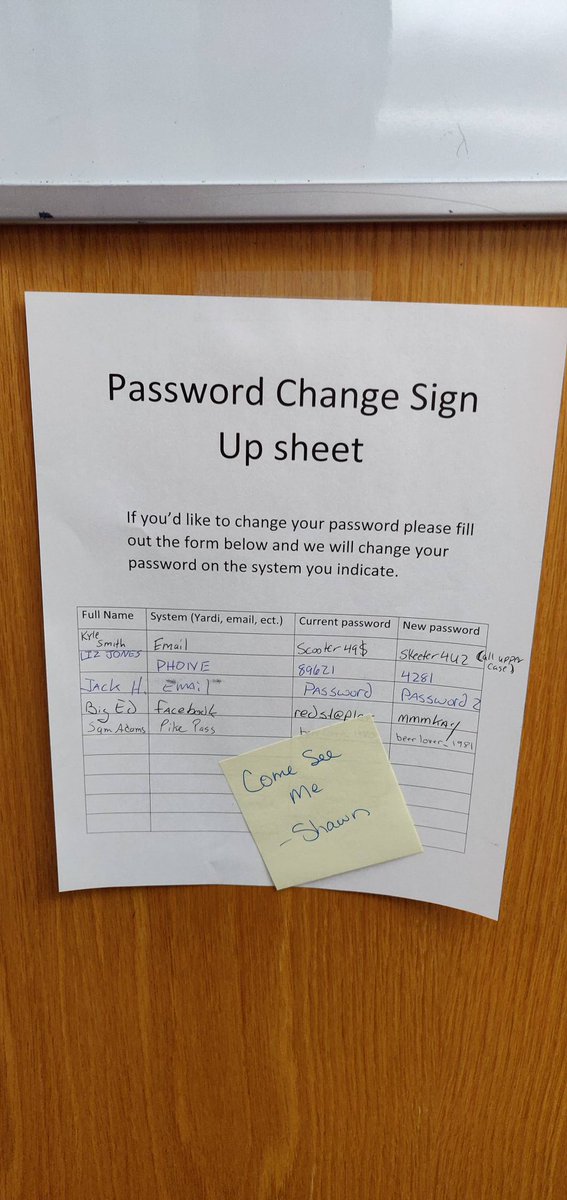 Password Change Sign
Up sheet
If you'd like to change your password please fill
out the form below and we will change your
password on the system you indicate.
Full Name System (Yardi, email, ect.) Current password New password
Kyle Smith Email Scooter49$ Skeeter4U2 (all upper case)
LIZ JONES PHONE 89621 4281
Jack H. EMail Password Password 2
Big Ed Facebook mmmkay
Sam Adams Pike Pass beerlover_1981
Come See
Me
- Shawn